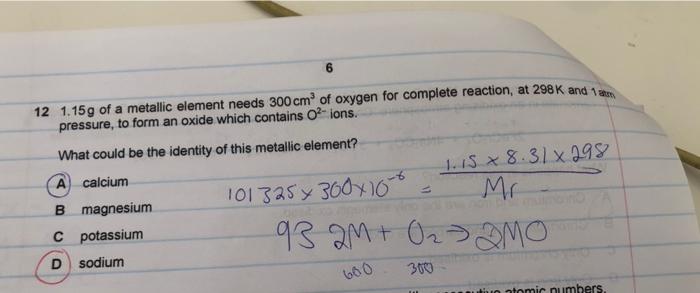 6
12 1.15g of a metallic element needs 300 cm³ of oxygen for complete reaction, at 298K and 1 atm
pressure, to form an oxide which contains O²⁻ ions.
What could be the identity of this metallic element?
A calcium
B magnesium
C potassium
D sodium
101325 × 300×10⁻⁶ = 1.15 × 8.31 × 298 / Mr
93 2M + O₂ → 2MO
600 300
atomic numbers.